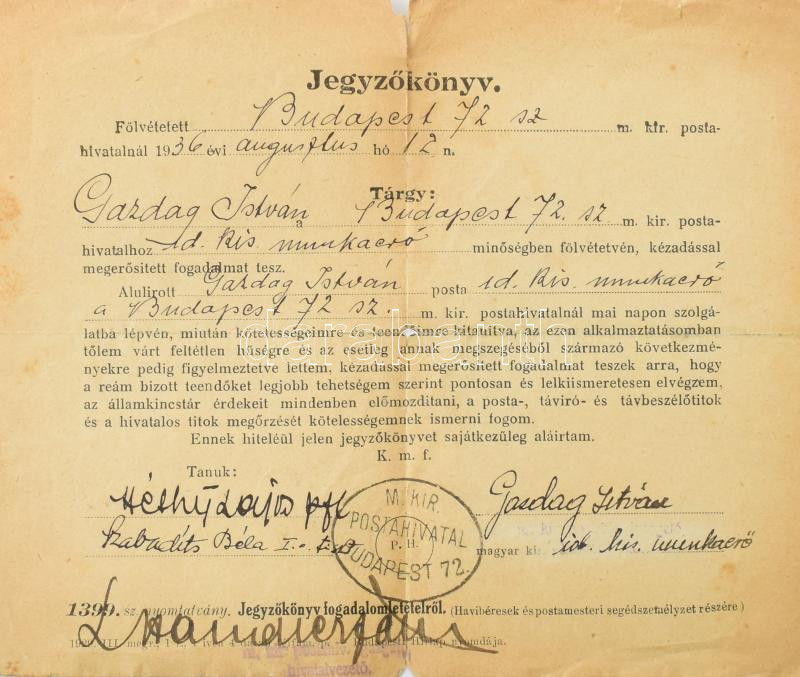 Jegyzőkönyv.
Fölvétetett Budapest 72 sz m. kir. posta-
hivatalnál 1936 évi augusztus hó 12 n.
Tárgy:
Gazdag István a Budapest 72. sz m. kir. posta-
hivatalhoz id. kis. munkaerő minőségben fölvétetvén, kézadással
megerősitett fogadalmat tesz.
Alulirott Gazdag István posta id. kis. munkaerő
a Budapest 72 sz. m. kir. postahivatalnál mai napon szolgá-
latba lépvén, miután kötelességeimre és teendőimre kitanitva, az ezen alkalmaztatásomban
tőlem várt feltétlen hűségre és az esetleg annak megszegéséből származó következmé-
nyekre pedig figyelmeztetve lettem, kézadással megerősitett fogadalmat teszek arra, hogy
a reám bizott teendőket legjobb tehetségem szerint pontosan és lelkiismeretesen elvégzem,
az államkincstár érdekeit mindenben előmozditani, a posta-, táviró- és távbeszélőtitok
és a hivatalos titok megőrzését kötelességemnek ismerni fogom.
Ennek hiteléül jelen jegyzőkönyvet sajátkezűleg aláirtam.
K. m. f.
Tanuk:
Héthy Lajos pft Gazdag István
M. KIR.
POSTAHIVATAL
P. H.
BUDAPEST 72.
Szabadits Béla I. magyar kir. id. kis. munkaerő
1399. sz. nyomtatvány. Jegyzőkönyv fogadalomletételről. (Havibéresek és postamesteri segédszemélyzet részére)
hivatalvezető.
darabanth